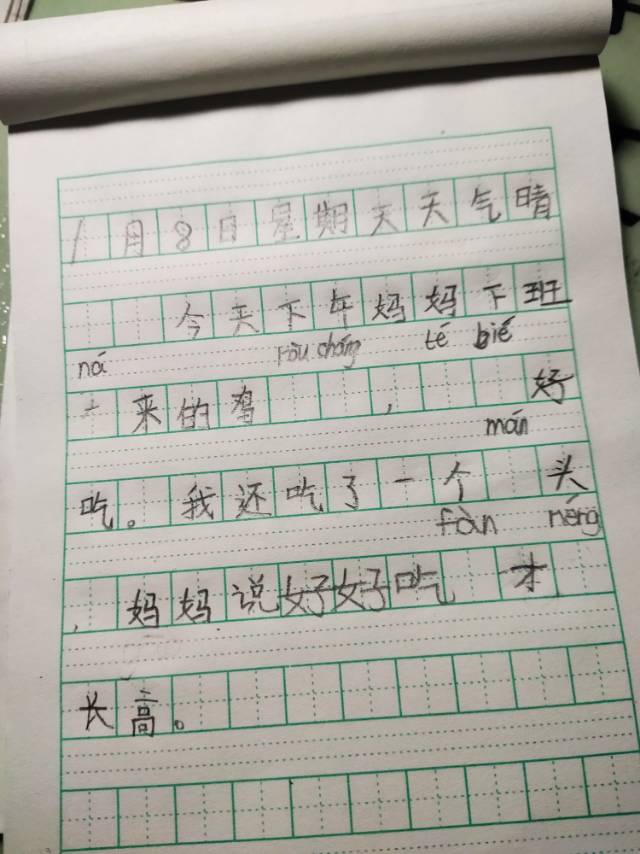 1月8日星期天天气晴
今天下午妈妈下班
ná ròu cháng té bié
来的鸡 , 好
mán
吃。我还吃了一个 头
fàn néng
,妈妈说好好吃 才
长高。